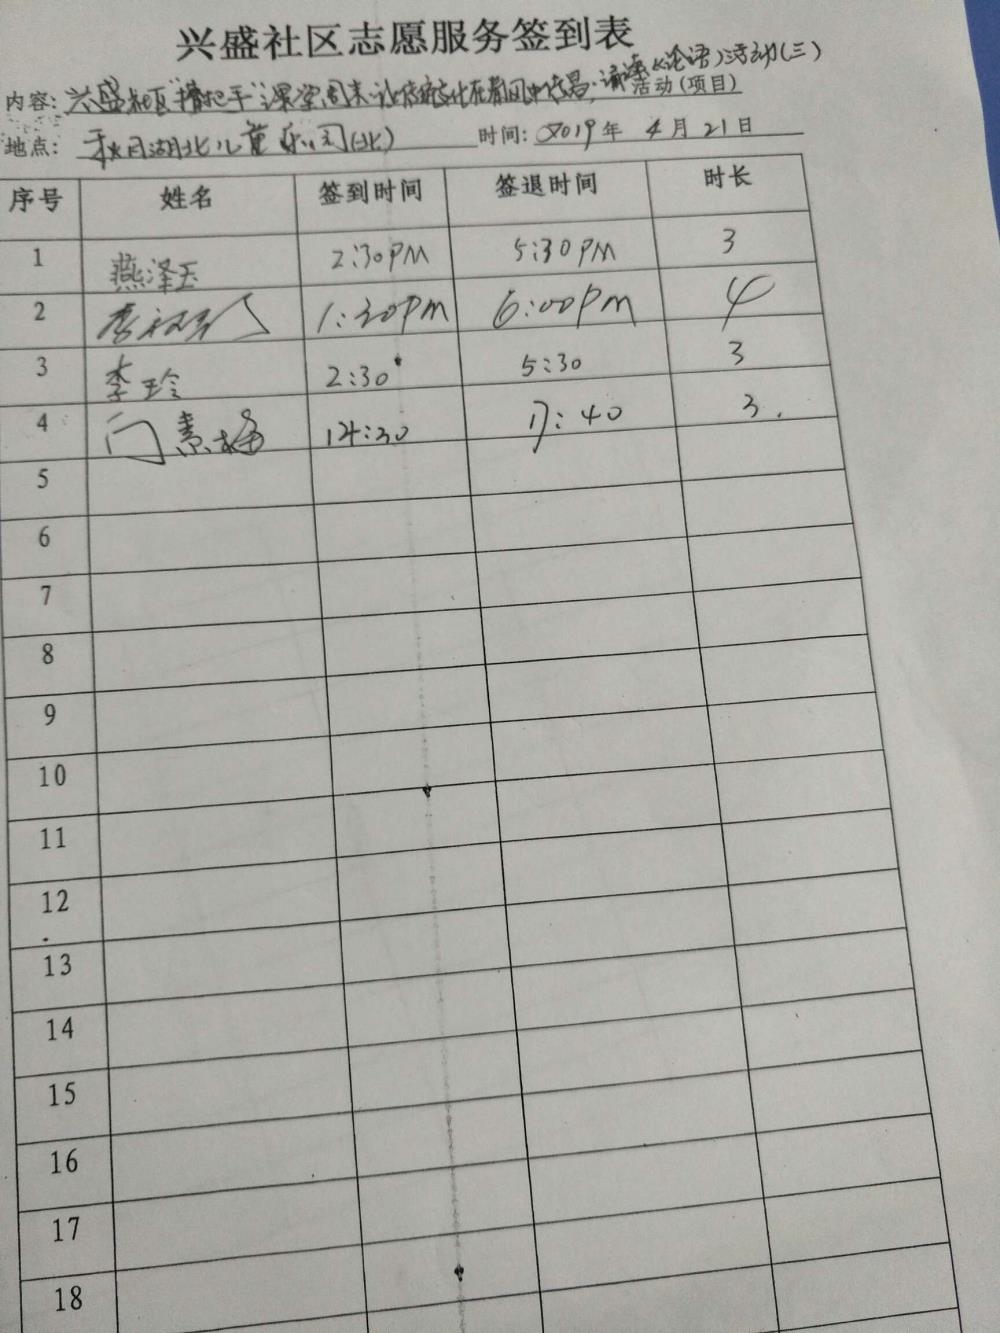 兴盛社区志愿服务签到表
内容: 兴盛社区 周末 让传统文化在 诵读《论语》活动(三)
活动(项目)
地点: 秋月湖北儿童乐园(北) 时间: 2019年 4月21日
序号 姓名 签到时间 签退时间 时长
1 燕泽玉 2:30PM 5:30PM 3
2 李 1:30PM 6:00PM 4
3 李玲 2:30 5:30 3
4 门素梅 14:30 17:40 3.
5
6
7
8
9
10
11
12
13
14
15
16
17
18